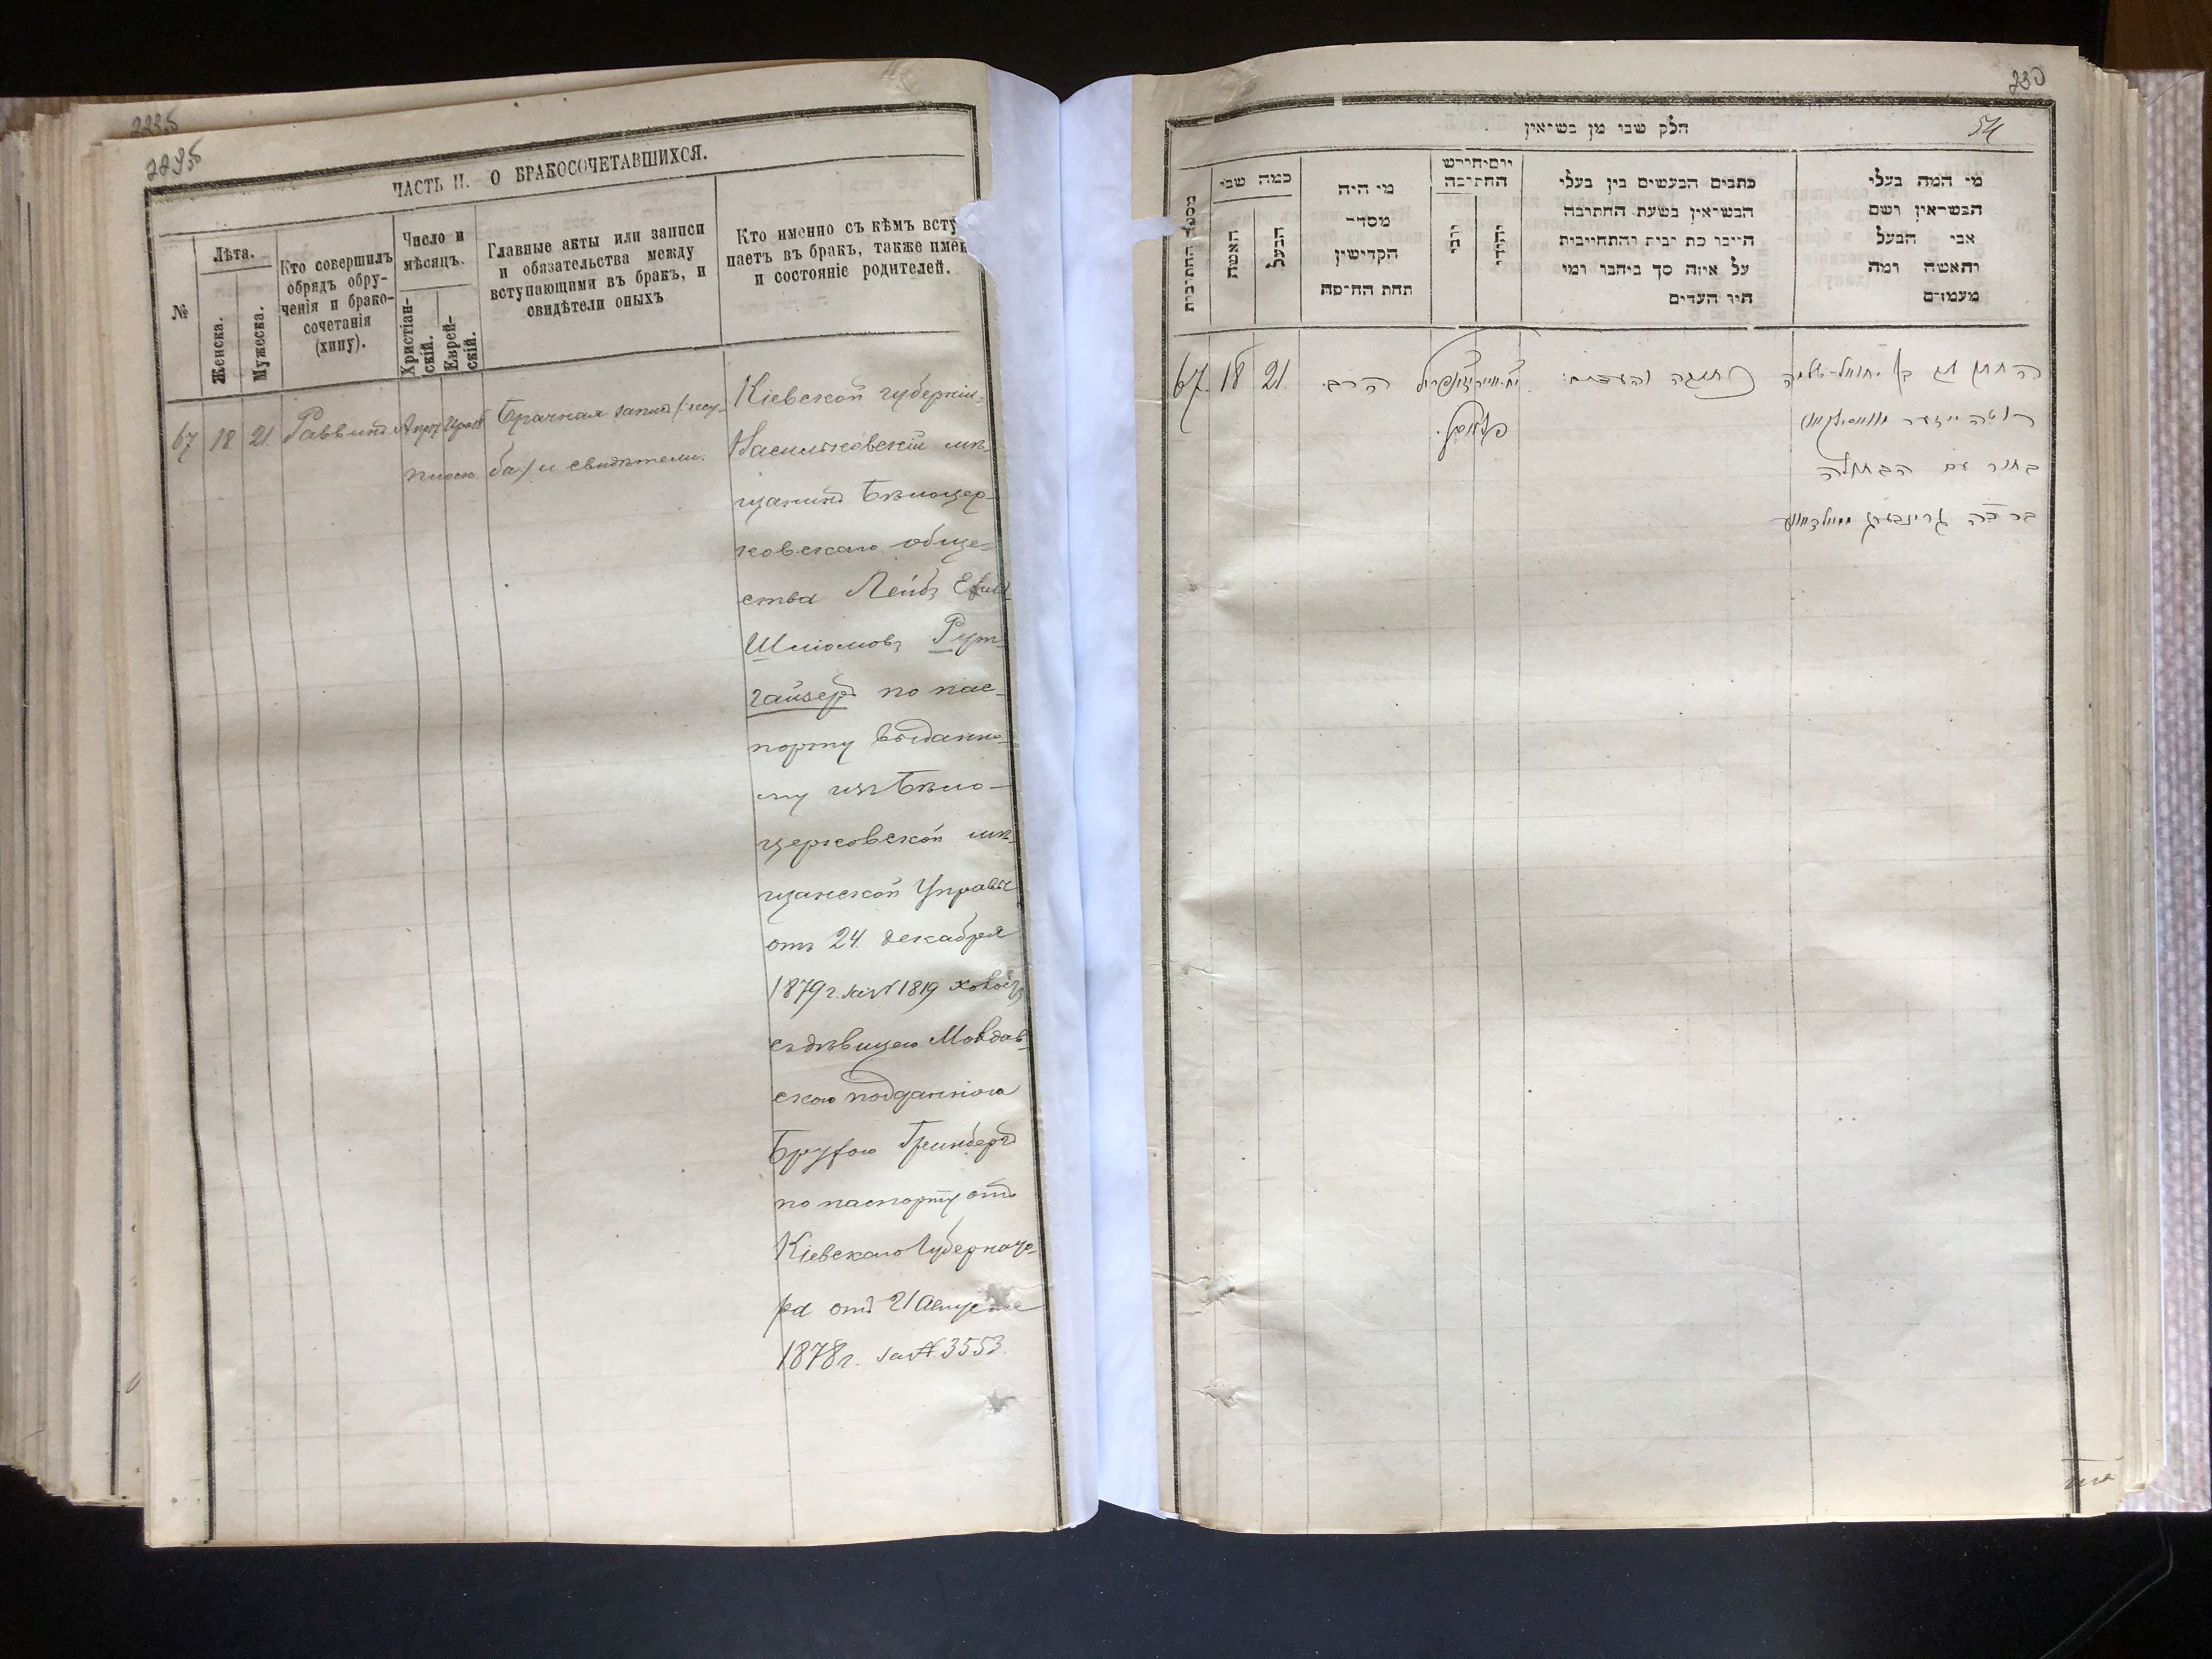 2235
2235
ЧАСТЬ II. О БРАКОСОЧЕТАВШИХСЯ.
№
Лѣта.
Женска.
Мужеска.
Кто совершилъ
обрядъ обру-
ченія и брако-
сочетанія
(хипу).
Число и
мѣсяцъ.
Христіан-
скій.
Еврей-
скій.
Главные акты или записи
и обязательства между
вступающими въ бракъ, и
свидѣтели оныхъ
Кто именно съ кѣмъ всту
паетъ въ бракъ, также имен
и состояніе родителей.
67 18 21 Раввинъ
Брачная запись /:ксу-
ба:/ и свидѣтели.
Кіевской губерніи
Васильковскій мѣ-
щанинъ Бѣлоцер-
ковскаго обще-
ства Лейбъ
Шліомовъ Рут-
гайзеръ по пас-
порту выданно-
му изъ Бѣло-
церковской мѣ-
щанской Управы
отъ 24 декабря
1879 г. за № 1819 холост
съ дѣвицею Молдав-
скою подданною
Брухою Гринбергъ
по паспорту отъ
Кіевскаго Губернато-
ра отъ 21 Августа
1878 г. за № 3553
230
54
חלק שני מן נשואין
מספר החתונות
כמה שני
האשה
הבעל
מי היה
מסדר
הקדישין
תחת החיפה
יום וחודש
החתונה
יומי
יהודי
כתבים הנעשים בין בעלי
הנשואין בשעת החתונה
היינו כת יבית והתחייבית
על איזה סך ביחבו ומי
היו העדים
מי המה בעלי
הנשואין ושם
אבי הבעל
והאשה ומה
מעמדם
67 18 21 הרב
כתובה ועדים
בחור עם הבתולה
ברכה גרינבערג